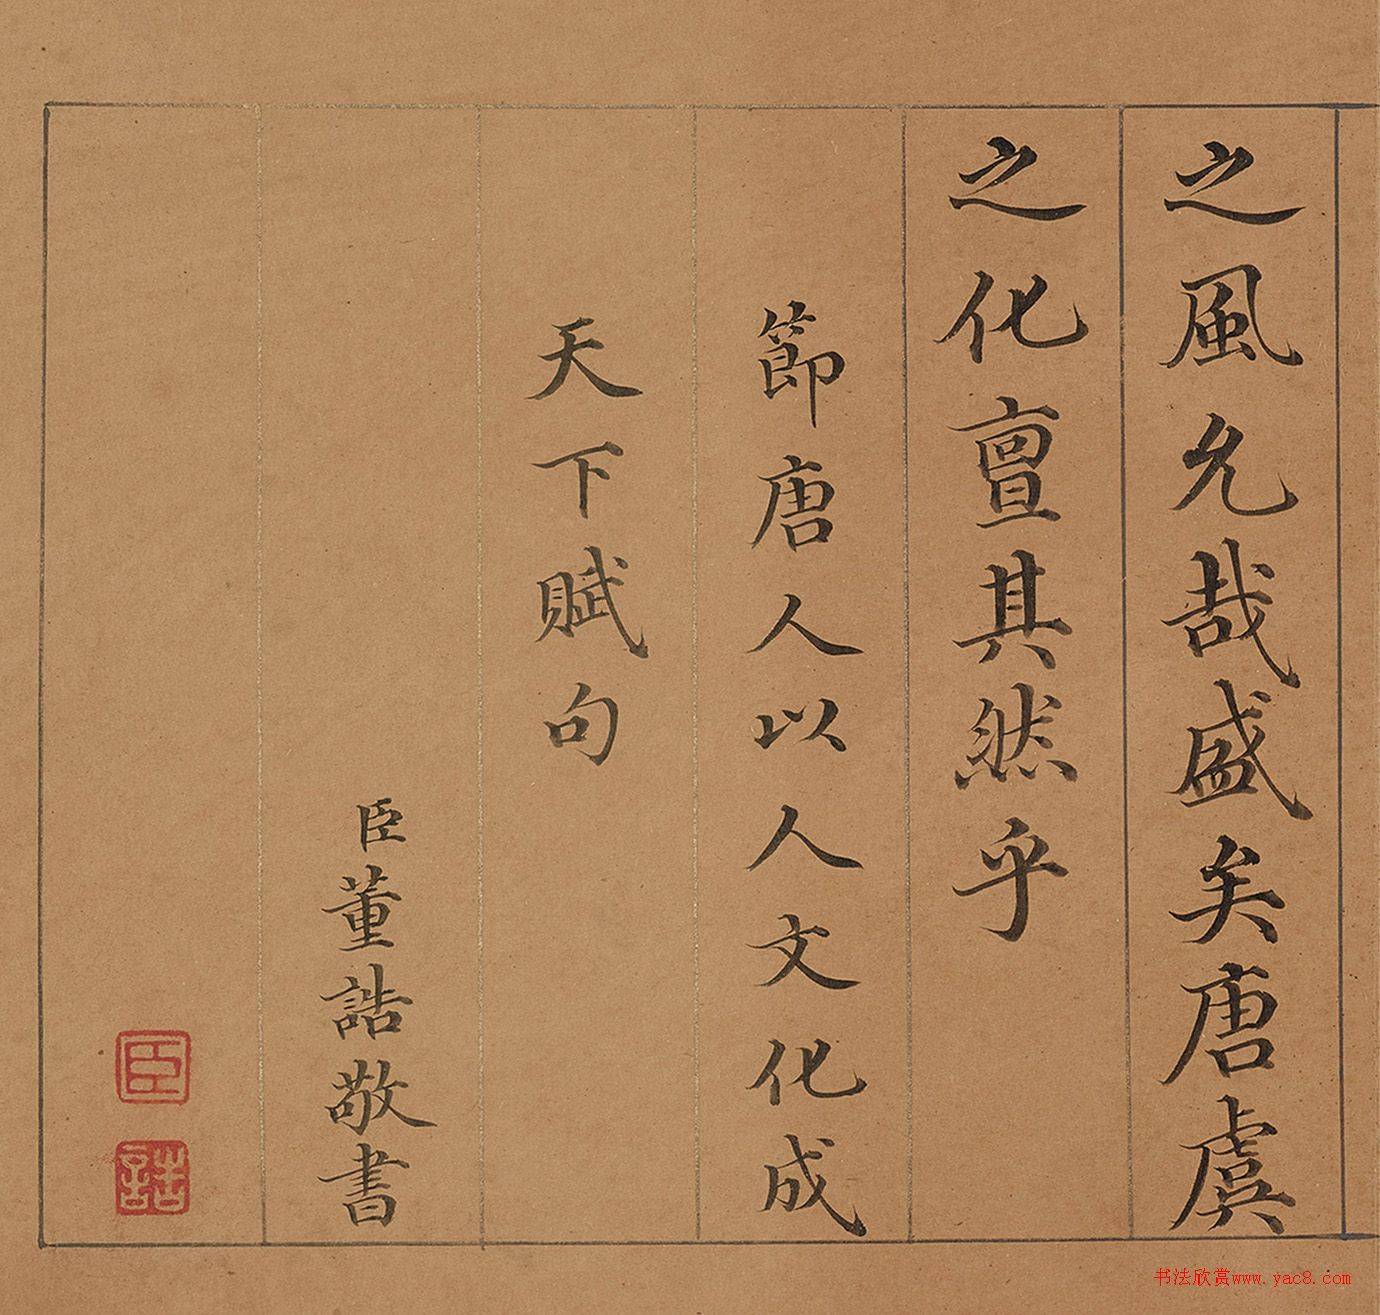 之風允哉盛矣唐虞
之化亶其然乎
節唐人以人文化成
天下賦句
臣董誥敬書
臣
誥
书法欣赏www.yac8.com